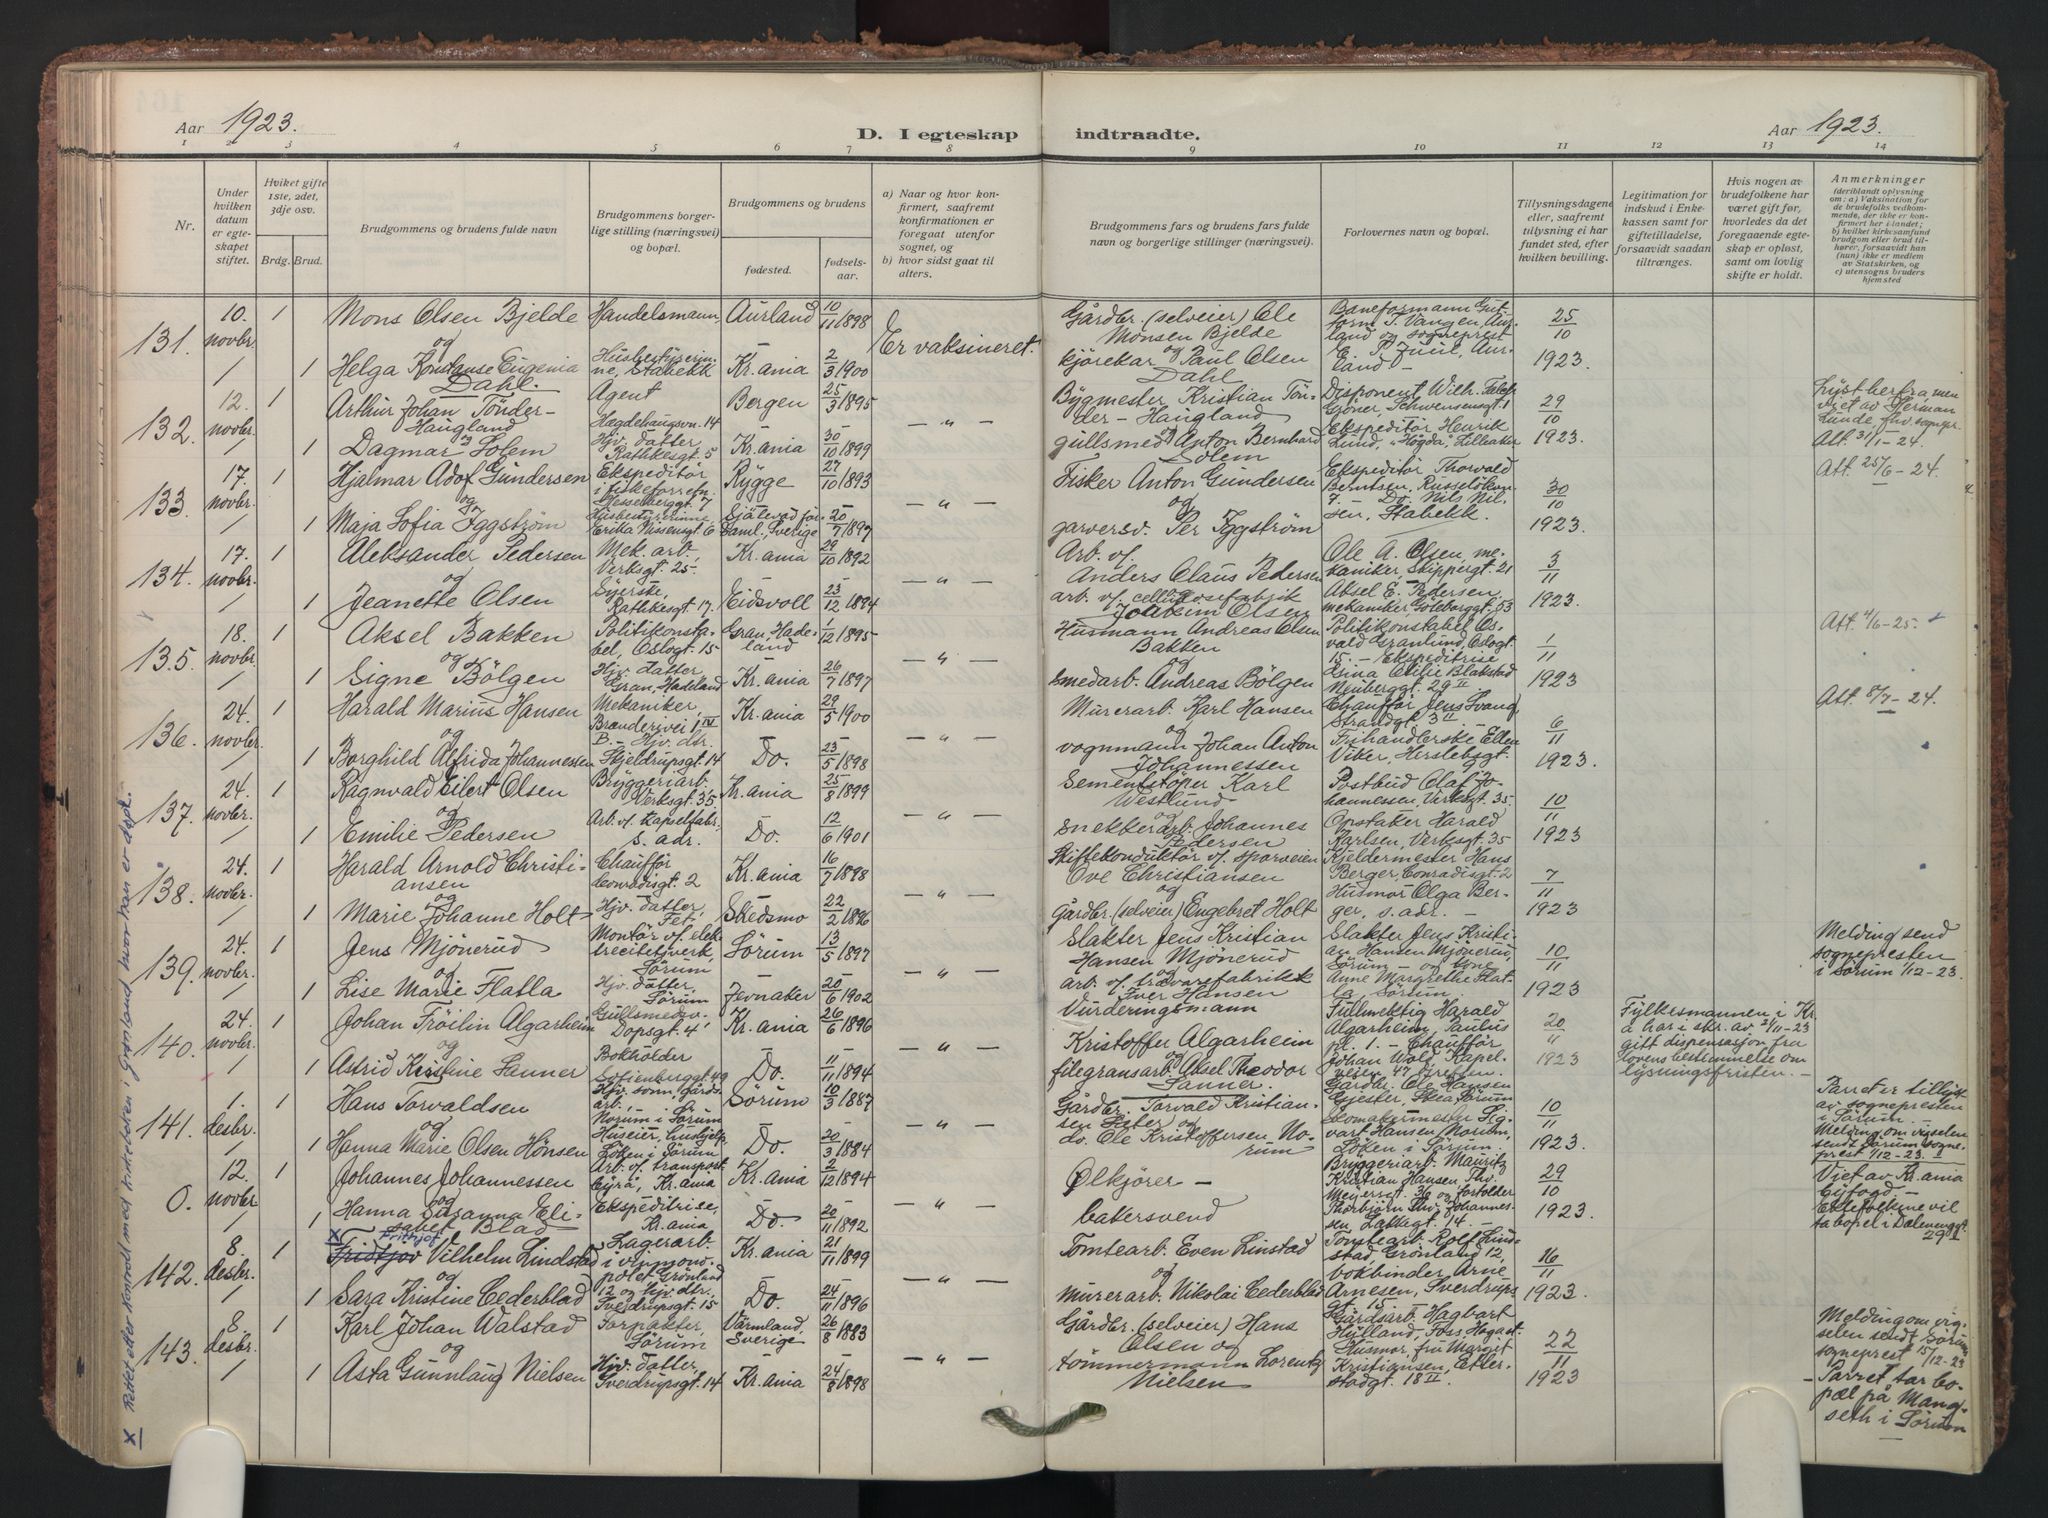 Aar 1923.
D. I egteskap indtraadte.
Aar 1923.
1 2 3 4 5 6 7 8 9 10 11 12 13 14
Nr.
Under hvilken datum er egteskapet stiftet.
Hvilket gifte 1ste, 2det, 3dje osv.
Brdg. Brud.
Brudgommens og brudens fulde navn
Brudgommens borgerlige stilling (næringsvei) og bopæl.
Brudgommens og brudens
fødested. fødselsaar.
a) Naar og hvor konfirmert, saafremt konfirmationen er foregaat utenfor sognet, og
b) hvor sidst gaat til alters.
Brudgommens fars og brudens fars fulde navn og borgerlige stillinger (næringsvei).
Forlovernes navn og bopæl.
Tillysningsdagene eller, saafremt tillysning ei har fundet sted, efter hvilken bevilling.
Legitimation for indskud i Enkekassen samt for giftetilladelse, forsaavidt saadan tiltrænges.
Hvis nogen av brudefolkene har været gift før, hvorledes da det foregaaende egteskap er opløst, samt om lovlig skifte er holdt.
Anmerkninger
(deriblandt oplysning om: a) Vaksination for de brudefolks vedkommende, der ikke er konfirmert her i landet; b) hvilket kirkesamfund brudgom eller brud tilhører, forsaavidt han (hun) ikke er medlem av Statskirken, og c) utensogns bruders hjemsted
131. 10. novbr. 1 Mons Olsen Bjelde Handelsmann, Aurland 10/11 1898 Er vaksineret. Gårdbr. (selveier) Ole Monsen Bjelde Baneformann Guttorm S. Vangen, Aurland og sogneprest E. P. Juul, Aurland - 25/10 1923
og
1 Helga Konstanse Eugenia Dahl. Husbestyrerinne, Stabekk Kr.ania 2/3 1900 kjörekar Paul Olsen Dahl
132. 12. novbr. 1 Arthur Johan Tönder-Haugland Agent Hægdehaugsv. 14 Bergen 25/3 1895 - " - Bygmester Kristian Tönder-Haugland Disponent Wilh. Schwensensgt. 1 29/10 1923.
Att. 31/1-24.
og
1 Dagmar Solem Hjv. datter Rathkesgt. 5 Kr.ania 30/10 1899 gullsmed Anton Bernhard Solem Ekspeditör Henrik Lund, "Högda", Lilleaker
133. 17. novbr. 1 Hjalmar Adof Gundersen Ekspeditör i fiskeforretn. Wesselsgt. 7 Rygge 27/10 1893 - " - Fisker Anton Gundersen Ekspeditör Thorvald Berntsen, Russelökken 7. - Do. Nils Nilsen, Stabekk. 30/10 1923.
Att. 25/6-24.
og
1 Maja Sofia Iggström Husbestyrerinne Erika Nissensgt. 6 Själevad församl., Sverige 20/7 1897 garversv. Per Iggström
134. 17. novbr. 1 Aleksander Pedersen Mek. arb., Verksgt. 25. Kr.ania 29/10 1892 - " - Arb. v. Anders Claus Pedersen Ole A. Olsen, mekaniker, Skippergt. 21 3/11 1923.
og
1 Jeanette Olsen Syerske, Rathkesgt. 17. Eidsvoll 23/12 1894 arb. v. cellulosefabrik Joakim Olsen Aksel E. Pedersen, mekaniker Göteborggt. 53
135. 18. novbr. 1 Aksel Bakken Politikonstabel, Oslogt. 15 Gran, Hadeland 1/12 1895 - " - Husmann Andreas Olsen Bakken Politikonstabel Osvald Granlund, Oslogt. 15. - Ekspeditrise Gina Otilie Blakstad Nyberggt. 29 II 1/11 1923
Att. 4/6-25.
og
1 Signe Bölgen Hjv. datter, Gran, Hadeland Kr.ania 26/7 1897 smedarb. Andreas Bölgen
136. 24. novbr. 1 Harald Marius Hansen Mekaniker, Brænderivei 1 IV B. - Kr.ania 29/5 1900 - " - Murerarb. Karl Hansen Chauffør Jens Svang, Strandgt. 3 II. - 6/11 1923.
Att. 8/7-24.
og
1 Borghild Alfrida Johannessen Hjv. dtr. Skjeldrupsgt. 14 Do. 23/5 1898 vognmann Johan Anton Johannessen Frihandlerske Ellen Viker, Herslebsgt.
137. 24. novbr. 1 Ragnvald Eilert Olsen Bryggeriarb., Verksgt. 35 Kr.ania 25/8 1899 - " - Sementstöper Karl Westlund Postbud Olaf Johannessen, Verksgt. 35, 10/11 1923
og
1 Emilie Pedersen Arb. v. kapselfabr., s. adr. Do. 12/6 1901 Snekkerarb. Johannes Pedersen Opstaker Harald Karlsen, Verksgt. 35
138. 24. novbr. 1 Harald Arnold Christiansen Chauffør Conradisgt. 2 Kr.ania 16/7 1898 - " - Skiftekonduktör v. sporveien Ove Christiansen Kjeldermester Hans Berger, Conradisgt. 2 7/11 1923
og
1 Marie Johanne Holt Hjv. datter, Fet. Skedsmo 22/2 1896 Gårdbr. (selveier) Engebret Holt Husmor Olga Berger, s. adr. -
139. 24. novbr. 1 Jens Mjönerud Montör v. elektrecitetsverk, Sörum Sörum 13/5 1897 - " - Slakter Jens Kristian Hansen Mjönerud Slakter Jens Kristian Hansen Mjönerud, Sörum - og kone Anne Margrethe Flatla Sörum. 10/11 1923
Melding send sognepresten i Sörum 1/12-23.
og
1 Lise Marie Flatla Hjv. datter, Sörum Jevnaker 20/6 1902 arb. v. trævarefabrikk Iver Hansen
140. 24. novbr. 1 Johan Fröilin Algarheim Gullsmedsv. Dopsgt. 4. Kr.ania 26/6 1896 - " - Vurderingsmann Kristoffer Algarheim Fullmektig Harald Algarheim, Paulus pl. 1. - Chauffør Johan Wold, Kapelveien 47 Grefsen. 20/11 1923
Fylkesmannen i Kr.a har i skr. av 21/11-23 gitt dispensasjon fra lovens bestemmelse om lysningsfristen. -
og
1 Astrid Kristine Sanner Bokholder Sofienberggt. 49 Do. 11/11 1894 filegransarb. Aksel Theodor Sanner.
141. 1. desbr. 1 Hans Torvaldsen Hjv. sønn, gårdsarb., Norum i Sörum Sörum 10/3 1887 - " - Gårdbr. Torvald Kristiansen Gårdbr. Ole Hansen Gjester, Skea Sörum 10/11 1923.
Parret er tillyst av sognepresten i Sörum. -
Melding om vigselen sendt Sörum sogneprest 1/12-23.
og
1 Hanna Marie Olsen Hönsen Huseier, hushjelp, Löken i Sörum Do. 20/3 1884 do. Ole Kristoffersen Norum Skomakermester Sigvart Hansen Norum, Löken i Sörum.
0. 12. novbr. 1 Johannes Johannessen Arb. v. transportbyrå, Kr.ania Kr.ania 2/12 1894 - " - Ölkjörer - Bryggeriarb. Mauritz Kristian Hansen Thv. Meyersgt. 36 og forfolder Thorbjörn Thv. Johannessen, Lakkegt. 14. - 29/10 1923.
Viet av Kr.ania Byfogd -
Ektefolkene vil ta bopel i Dælenenggt. 29 I
og
1 Hanna Susanna Elisabet Blad Ekspeditrise, Kr.ania Do. 20/11 1892 bakersvend
142. 8. desbr. 1 x Fridtjov Frithjof Vilhelm Lindstad Lagerarb. i vinmonopolet Grönland 12 Kr.ania 21/11 1899 - " - Tomtearb. Even Linstad Tomtearb. Rolf Lindstad Grönland 12, 16/11 1923.
og
1 Sara Kristine Cederblad og hjv. dtr., Sverdrupsgt. 15 Do. 24/11 1896 murerarb. Nikolai Cederblad bokbinder Arne Arnesen, Sverdrupsgt. 15
143. 8 desbr. 1 Karl Johan Walstad Forpakter, Sörum Värmland, Sverige 26/8 1883 - " - Gårdbr. (selveier) Hans Olsen og Gårdsarb. Hagbart Hylland, Foss, Hogast 22/11 1923
Melding om vigselen sendt Sörum sogneprest 15/12-23
- Parret tar bopæl på Mangseth i Sörum
og
1 Asta Gunnlaug Nielsen Hjv. datter, Sverdrupsgt. 14 Kr.ania 24/8 1898 tömmermann Lorentz Nielsen Husmor, fru Margit Kristiansen, Etterstadgt. 18 II.
x Rettet efter kontroll med kirkeboken i Grønland hvor han er døpt.